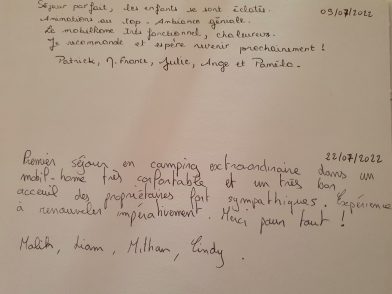 Séjour parfait, les enfants se sont éclatés. 09/07/2022
Animations au top. Ambiance géniale.
Le mobilhome très fonctionnel, chaleureux.
Je recommande et espère revenir prochainement !
Patrick, M. France, Julie, Ange et Paméla.
22/07/2022
Premier séjour en camping extraordinaire dans un
mobil-home très confortable et un très bon
acceuil des propriétaires fort sympathiques. Expérience
à renouveler impérativement. Merci pour tout !
Malik, Liam, Milhan, Cindy.